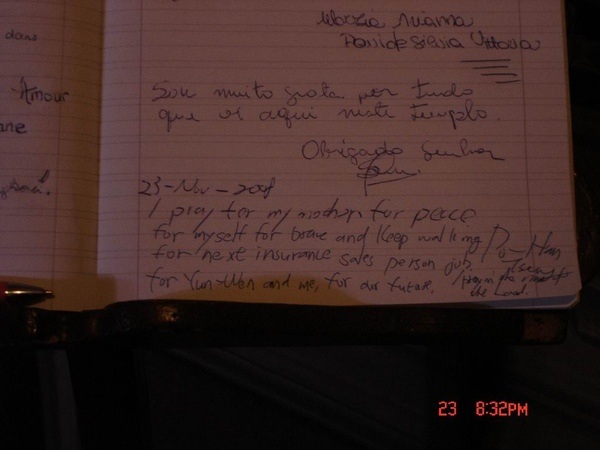 dans
Amour
Marzia Marina
Davide Silvia Vittoria
Sou muito grata por tudo
que vi aqui neste templo.
Obrigado Senhor
23-Nov-2008
I pray for my mother for peace
for myself for brave and keep walking
for next insurance sales person job.
for Yun-Wen and me, for our future.
Po-Han
I pray in the name of
the Lord.
23 8:32PM